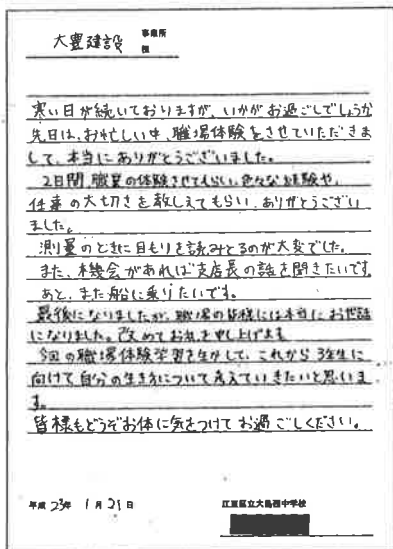 大豊建設 事業所
様
寒い日が続いておりますが、いかがお過ごしでしょうか
先日は、お忙しい中、職場体験をさせていただきま
して、本当にありがとうございました。
2日間、職業の体験させてもらい、色々な体験や、
仕事の大切さを教えてもらい、ありがとうござい
ました。
測量のときに目もりを読みとるのが大変でした。
また、機会があれば支店長の話を聞きたいです。
あと、また船に乗りたいです。
最後になりましたが、職場の皆様には本当にお世話
になりました。改めてお礼を申し上げます
今回の職場体験学習を生かして、これから3年生に
向けて自分の生き方について考えていきたいと思いま
す。
皆様もどうぞお体に気をつけてお過ごしください。
平成 23年 1月 21日
江東区立大島西中学校